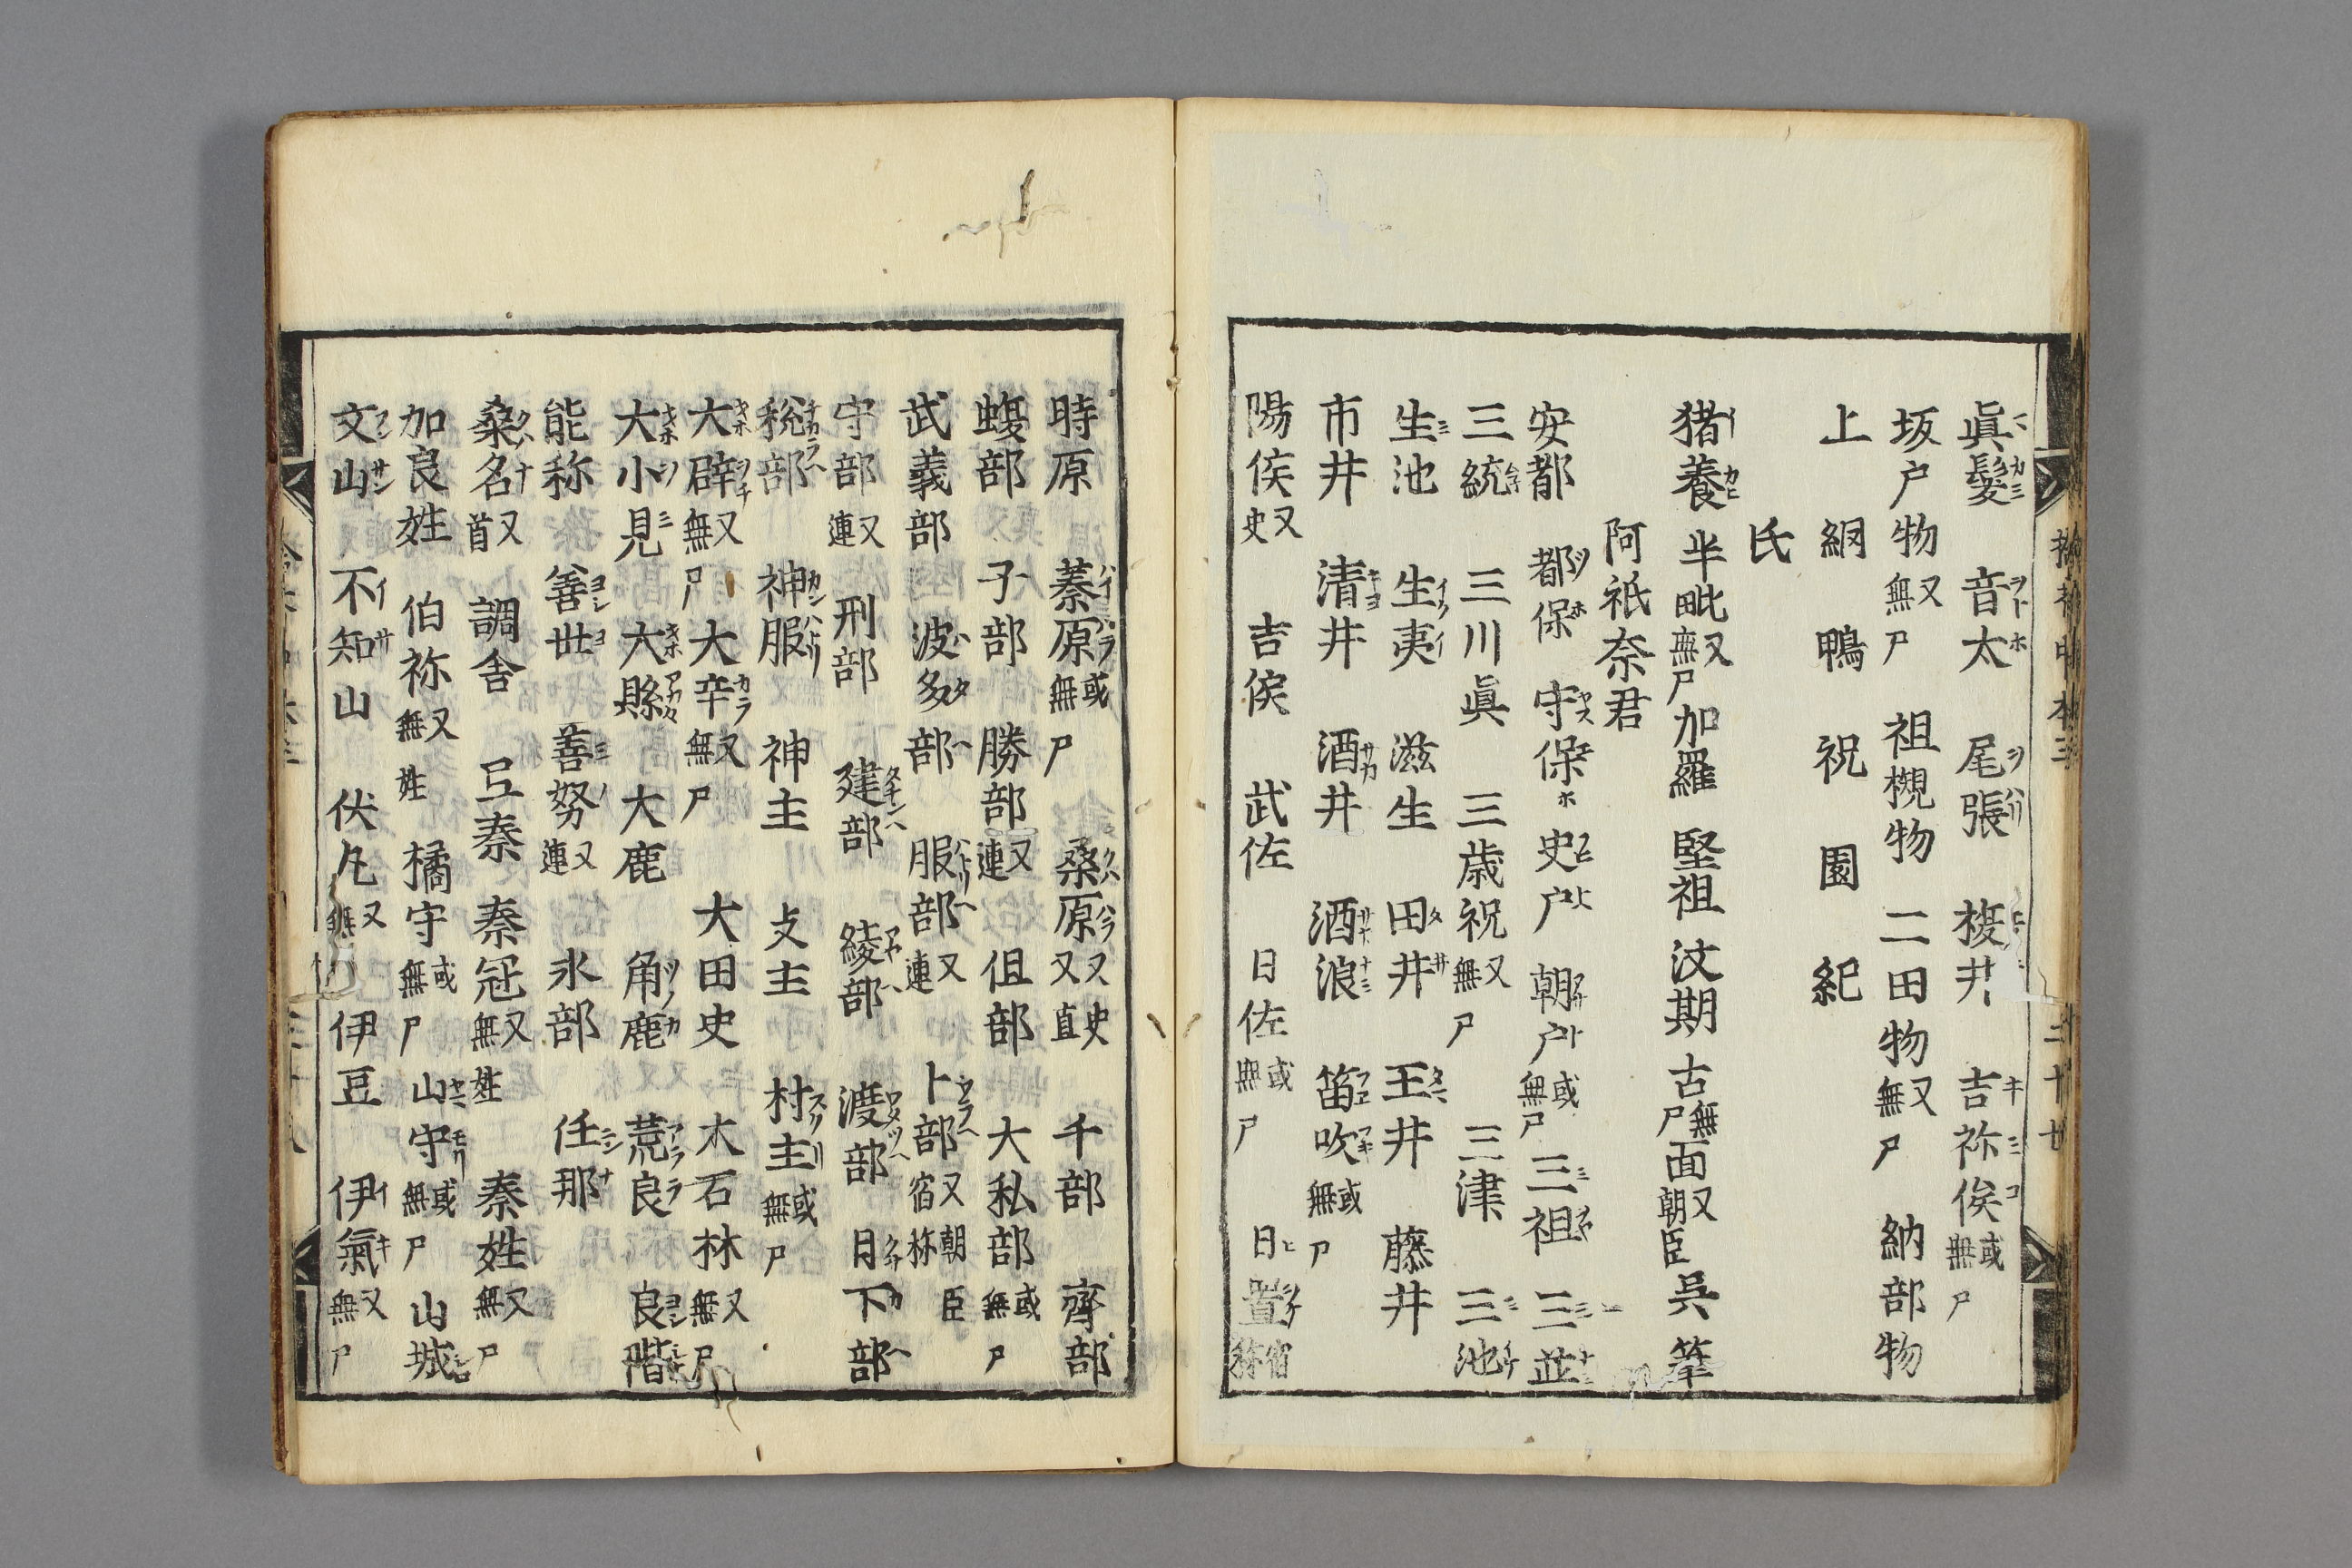 眞髮 音太 尾張 椱井 吉祢侯 或無尸
坂戸物 又無尸 祖槻物 二田物 又無尸 納部物
上 網 鴨 祝 園 紀
氏
猪養 半毗 又無尸 加羅 堅祖 汶期 古 無尸 面 又朝臣 呉 筆
阿祇奈君
安都 都保 守保 史戸 朝戸 或無尸 三祖 三
三統 三川眞 三歳祝 又無尸 三津 三池
生池 生夷 滋生 田井 王井 藤井
市井 清井 酒井 酒浪 笛吹 或無尸
陽侯 又史 吉侯 武佐 日佐 或無尸 日置 宿祢
時原 蓁原 或無尸 桑原 又史又直 千部 齊部
蝮部 子部 勝部 又連 伹部 大私部 或無尸
武義部 波多部 服部 又連 卜部 又朝臣宿祢
守部 又連 刑部 建部 綾部 渡部 日下部
税部 神服 神主 主 村主 或無尸
大辟 又無尸 大辛 又無尸 大田史 大石林 又無尸
大小見 大縣 大鹿 角鹿 荒良 良階
能称 善世 善努 又連 氷部 任那
桑名 又首 調舎 秦 秦冠 又無姓 秦姓 又無尸
加良姓 伯祢 又無姓 橘守 或無尸 山守 或無尸 山城
文山 不知山 伏丸 又無 伊豆 伊氣 又無尸